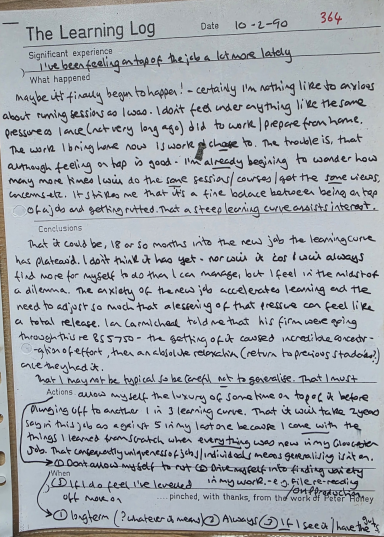 364
The Learning Log Date 10-2-90
Significant experience
I've been feeling on top of the job a lot more lately
What happened
Maybe it's finally begun to happen! - certainly I'm nothing like so anxious
about running sessions as I was. I don't feel under anything like the same
pressure as I once (not very long ago) did to work/prepare from home.
The work I bring home now is work I chose to. The trouble is, that
although feeling on top is good - I'm already begining to wonder how
many more times I will do the same sessions/courses/get the same views,
concerns etc. It strikes me that it's a fine balance between being on top
of a job and getting rutted. That a steep learning curve assists interest.
Conclusions
That it could be, 18 or so months into the new job the learning curve
has plateau'd. I don't think it has yet - nor will it cos I will always
find more for myself to do than I can manage, but I feel in the midst of
a dilemma. The anxiety of the new job accelerates learning and the
need to adjust so much that a lessening of that pressure can feel like
a total release. Ian Carmichael told me that his firm were going
through this re BS5750 - the getting of it caused incredible
of effort, then an absolute relaxation (return to previous standards?)
once they had it.
That I may not be typical so be careful not to generalise. That I must
Actions allow myself the luxury of some time on top of it before
plunging off to another 1 in 3 learning curve. That it will take 2 years
say in this job as against 5 in my last one because I came with the
things I learned from scratch when everything was new in my Gloucester
job. That consequently uniqueness of jobs/individuals means generalising is
① Don't allow myself to rut ② Drive myself into finding variety
When in my work - e.g. file re-reading
① If I do feel I've levelled /on production
off move on .... pinched, with thanks, from the work of Peter Honey
① long term (? whatever a means) ② Always ③ If I see a/have the